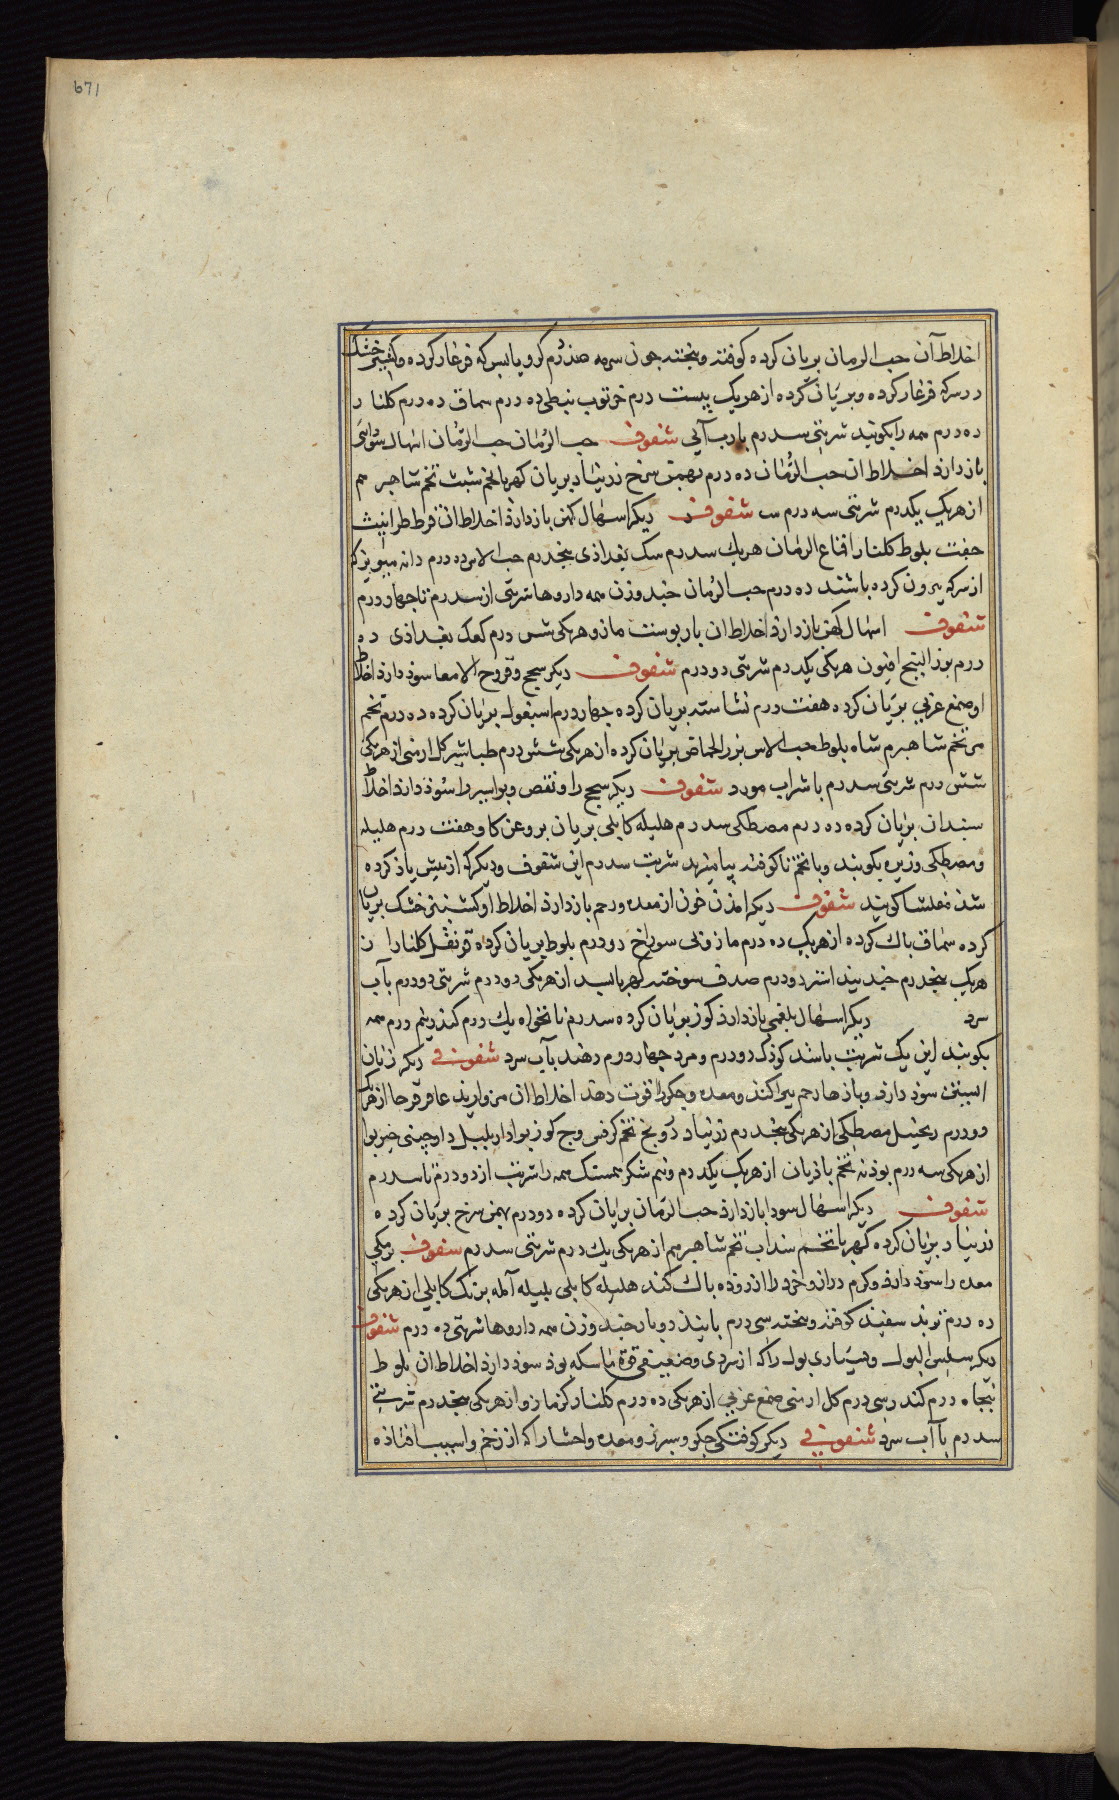 671
اخلاط آن حب الرمان بریان کرده کوفته و بیخته جون سرمه صد درم کرویا بسرکه فرغار کرده و کشنیز خشک
در سرکه فرغار کرده و بریان کرده از هر یک بیست درم خرنوب نبطی ده درم سماق ده درم کلنار
ده درم همه را بکوبند شربتی سدرم بارب آبی شفوف حب الرمان حب الرمان اسهال سوداسی
باز دارد اخلاط ان حب الرمان ده درم بهمن سرخ زرنباد بریان کهربا تخم شبث تخم شاهبرم
از هر یک یکدرم شربتی سه درم شفوف دیکر اسهال کهن باز دارد اخلاط ان قرط طراثیث
جفت بلوط کلنار اقماع الرمان هریک سدرم سک بغداذی بنجدرم حب الاس ده درم دانه میویز که
از سرکه بیرون کرده باشند ده درم حب الرمان جند وزن همه داروها شربتی از سدرم تا جهار درم
شفوف اسهال کهن باز دارد اخلاط ان بار بوست مازو هریکی شس درم کعک بغداذی ده
درم بزر البنج افیون هریکی یکدرم شربتی دو درم شفوف دیکر سحج و قروح الامعا سود دارد اخلاط
او صمغ عربی بریان کرده هفت درم نشاسته بریان کرده جهار درم اسبغول بریان کرده ده درم تخم
مر تخم شاهبرم شاه بلوط حب الاس بزر الحماض بریان کرده از هریکی شش درم طباشیر کل ارمنی از هریکی
شش درم شربتی سدرم باشراب مورد شفوف دیکر سحج را و نقص و بواسیر را سود دارد اخلاط
سبندان بریان کرده ده درم مصطکی سدرم هلیله کابلی بریان بروغن کاو هفت درم هلیله
و مصطکی و زیره بکوبند و با تخم ناکوفته بیامیزند شربت سدرم این شفوف و دیکر که از بیش یاد کرده
شد مقلیثا کویند شفوف دیکر امدن خون از معده و رحم باز دارد اخلاط او کشنیز خشک بریان
کرده سماق باک کرده از هریک ده درم مازو بی سوراخ دو درم بلوط بریان کرده قرنفل کلنار از
هریک بنجدرم جند بیداستر دو درم صدف سوخته کهربا بسد از هریکی دو درم شربتی دو درم بآب
سرد دیکر اسهال بلغمی باز دارد کوز بریان کرده سدرم نانخواه یک درم کندر نیم درم همه
بکوبند این یک شربت باشد کودک دو درم و مرد جهار درم دهند بآب سرد شفوف دیکر زنان
ابستن سود دارد و بادها رحم براکند و معده و جکر را قوت دهد اخلاط ان مروارید عاقرقرحا از هریک
دو درم زنجبیل مصطکی از هریکی بنجدرم زرنباد درونج تخم کرفس وج کوزبوا دار بلبل دارچینی خیربوا
از هریکی سه درم بوذنه تخم باذریان از هریک یکدرم و نیم شکر همسنک همه را شربت از دو درم تا سدرم
شفوف دیکر اسهال سودا باز دارد حب الرمان بریان کرده دو درم بهمن سرخ بریان کرده
زرنباد بریان کرده کهربا تخم سنداب تخم شاهبرم از هریکی یک درم شربتی سدرم سفوف برمکی
معده را سود دارد و کرم دراز و خرد را از روده باک کند هلیله کابلی بلیله آمله برنک کابلی از هریکی
ده درم تربد سفید کوفته و بیخته سی درم بانید دوبار جند وزن همه داروها شربتی ده درم شفوف
دیکر سلس البول و بسیاری بول را که از سردی و ضعیفی قوة ماسکه بود سود دارد اخلاط ان بلوط
بنجاه درم کندر سی درم کل ارمنی صمغ عربی از هریکی ده درم کلنار کزمازو از هریکی بنجدرم شربتی
سدرم باآب سرد شفوف دیکر کوفتکی جکر و سبرز و معده و احشا را که از زخم و اسیب افتاذه